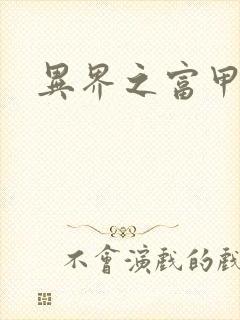 異界之富甲
不會演戲的戲